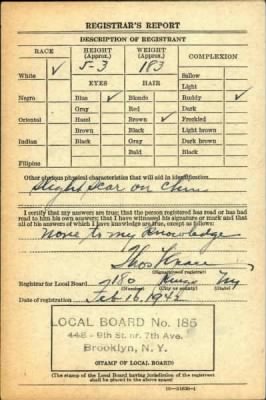 REGISTRAR'S REPORT
DESCRIPTION OF REGISTRANT
RACE HEIGHT (Approx.) WEIGHT (Approx.) COMPLEXION
✓ 5-3 183
White Sallow
EYES HAIR Light
Negro Blue ✓ Blonde Ruddy ✓
Gray Red Dark
Oriental Hazel Brown ✓ Freckled
Brown Black Light brown
Indian Black Gray Dark brown
Bald Black
Filipino
Other obvious physical characteristics that will aid in identification
Slight scar on chin
I certify that my answers are true; that the person registered has read or has had
read to him his own answers; that I have witnessed his signature or mark and that
all of his answers of which I have knowledge are true, except as follows:
None to my Knowledge
Thos
(Signature of registrar)
Registrar for Local Board 186 Kings Ny
(Number) (City or county) (State)
Date of registration Feb 16, 1942
LOCAL BOARD No. 186
448 - 9th St. nr. 7th Ave.
Brooklyn, N. Y.
(STAMP OF LOCAL BOARD)
(The stamp of the Local Board having jurisdiction of the registrant
shall be placed in the above space.)